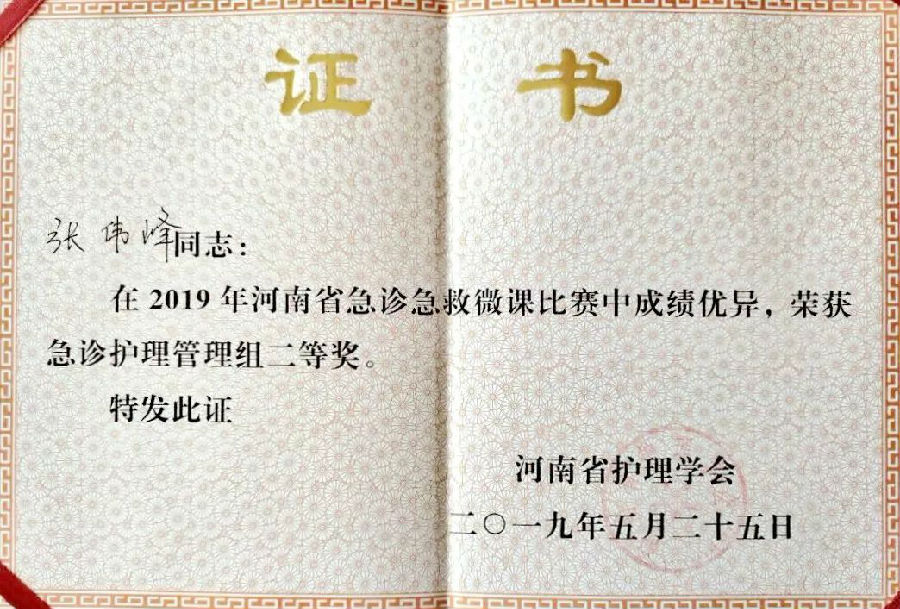 证书
张伟峰同志：
在 2019 年河南省急诊急救微课比赛中成绩优异，荣获
急诊护理管理组二等奖。
特发此证
河南省护理学会
二〇一九年五月二十五日